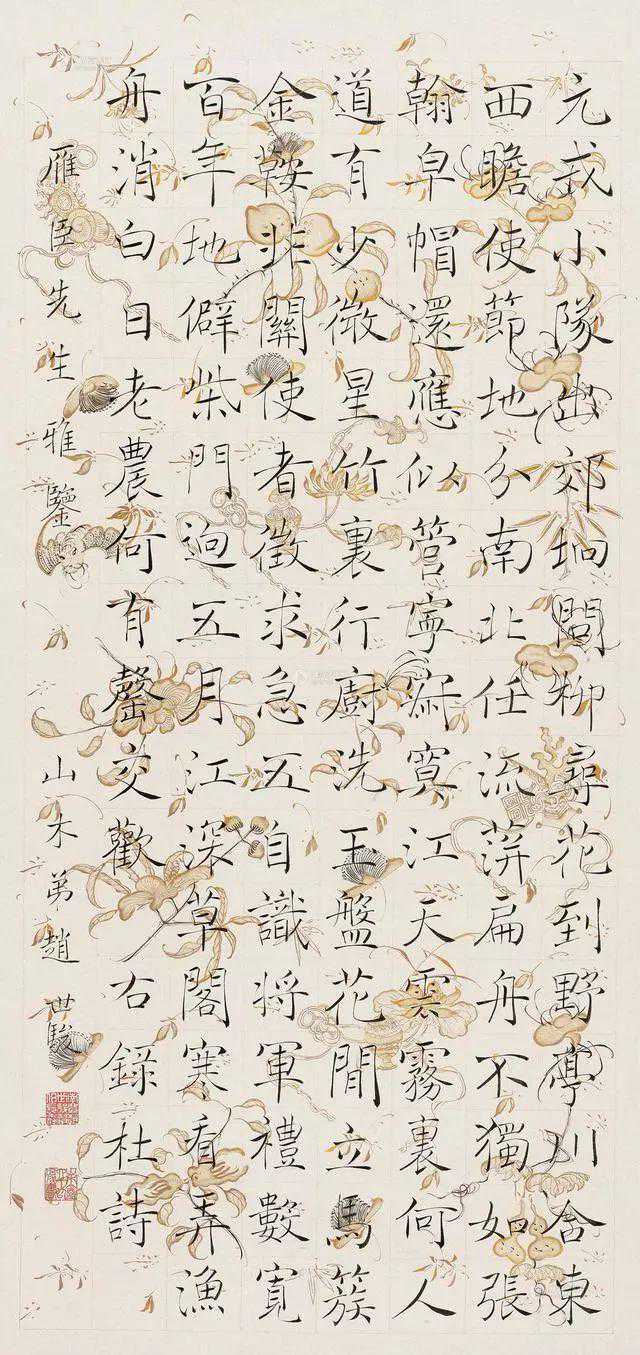 元戎小隊出郊坰問柳尋花到野亭川合東
西瞻使節地分南北任流萍扁舟不獨如張
翰皁帽還應似管寧寂寞江天雲霧裏何人
道有少微星竹裏行廚洗玉盤花間立馬簇
金鞍非關使者徵求急五自識將軍禮數寬
百年地僻柴門迥五月江深草閣寒看弄漁
舟消白日老農何有罄交歡右錄杜詩
雁臣先生雅鑒 山木弟趙世駿